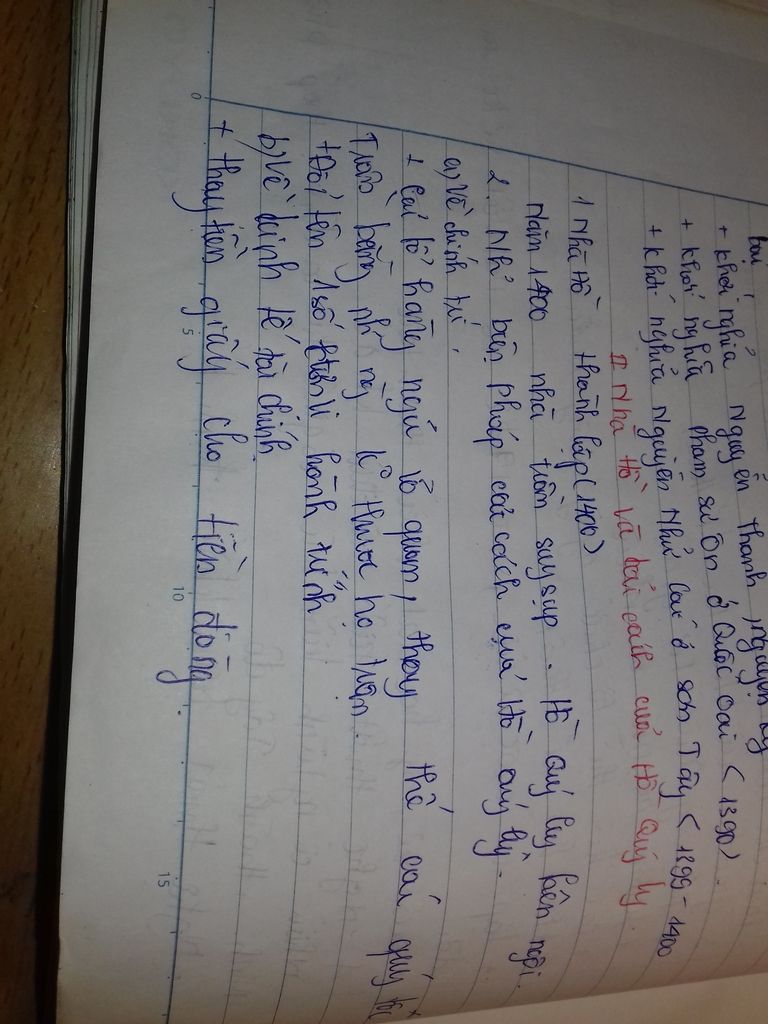 + khởi nghĩa Nguyễn Thanh, Nguyễn Kỵ
+ khởi nghĩa Phạm Sư Ôn ở Quốc Oai (1390).
+ khởi nghĩa Nguyễn Nhữ Cái ở Sơn Tây (1399-1400
II Nhà Hồ và cải cách của Hồ Quý Ly
1 Nhà Hồ thành lập (1400)
Năm 1400 nhà trần suy sụp. Hồ Quý Ly lên ngôi.
2. Những biện pháp cải cách của Hồ Quý Ly.
a, Về chính trị,
+ cải tổ hàng ngũ võ quan, thay thế các quý tộc
Trần bằng những ng k° thuộc họ trần.
+ Đổi tên 1 số đơn vị hành chính
b, Về kinh tế tài chính
+ thay tiền giấy cho tiền đồng.
0
5
10
15